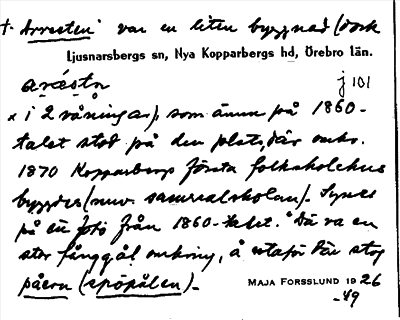 + "Arresten" var en liten byggnad (dock
Ljusnarsbergs sn, Nya Kopparbergs hd, Örebro län.
arésta
j 101
x i 2 våningar), som ännu på 1860-
talet stod på den plats, där omkr.
1870 Kopparbergs första folkskolehus
byggdes (nuv. samrealskolan). Synes
på ett foto från 1860-talet. "Dä va en
stor fånggål omkring, å utaför där stog
påern (spöpålen)._
MAJA FORSSLUND 1926
-49